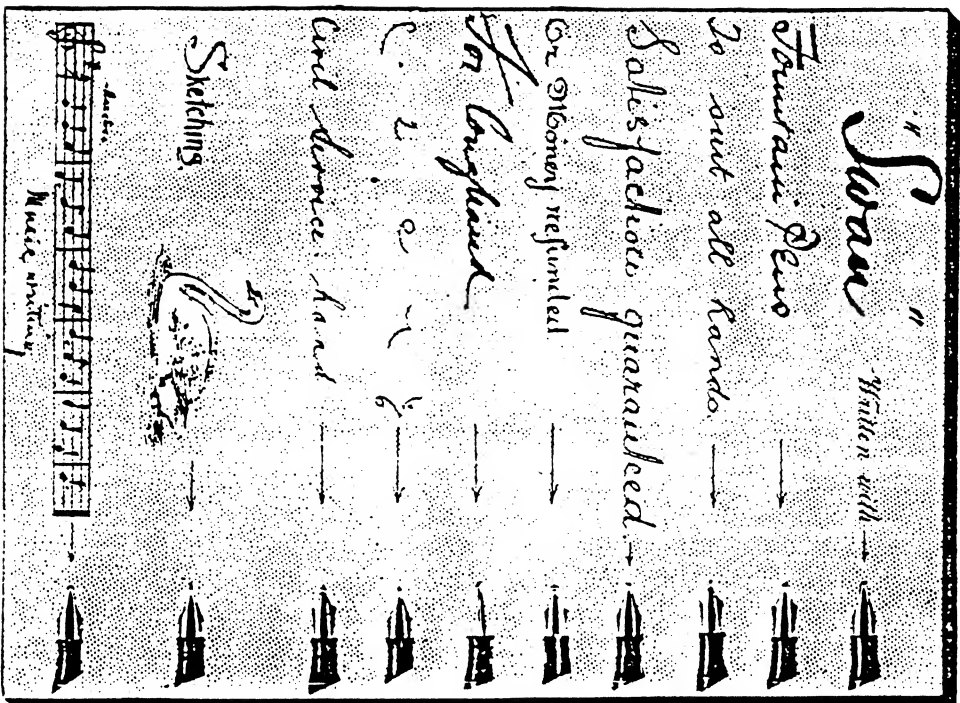 "Swan" Written with
Fountain Pens
To suit all hands
Satisfaction guaranteed
Or Money refunded
For Longhand
Civil Service hand
Sketching
Music writing